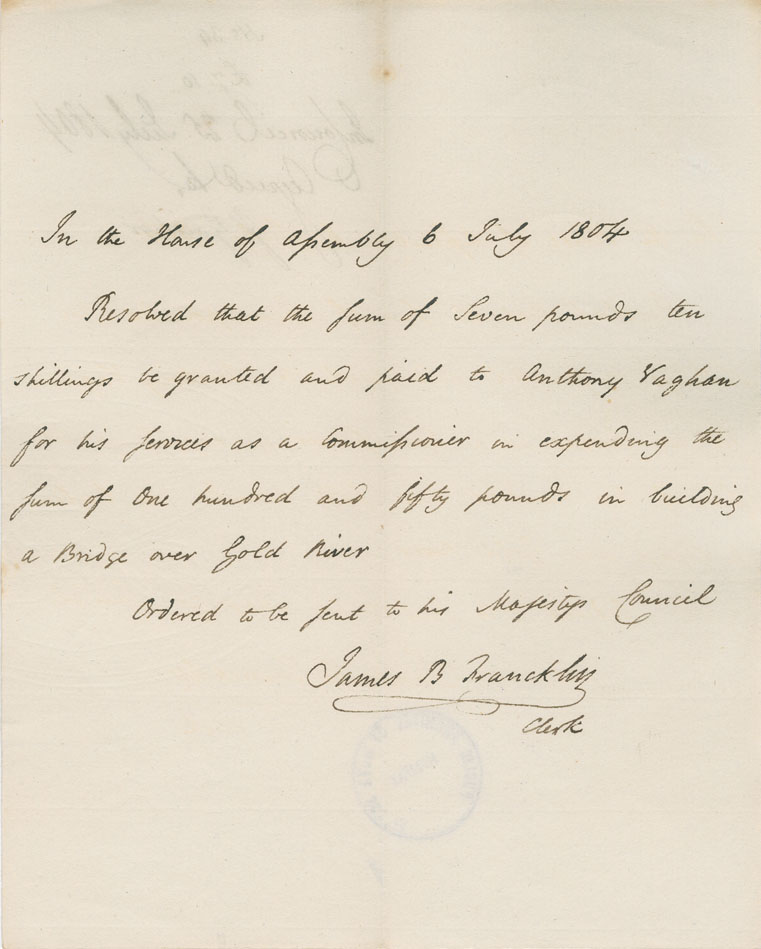 In the House of Assembly 6 July 1804
Resolved that the sum of Seven pounds ten
shillings be granted and paid to Anthony Vaghan
for his services as a Commissioner in expending the
sum of One hundred and fifty pounds in building
a Bridge over Gold River
Ordered to be sent to his Majestys Council
James B Francklin
Clerk